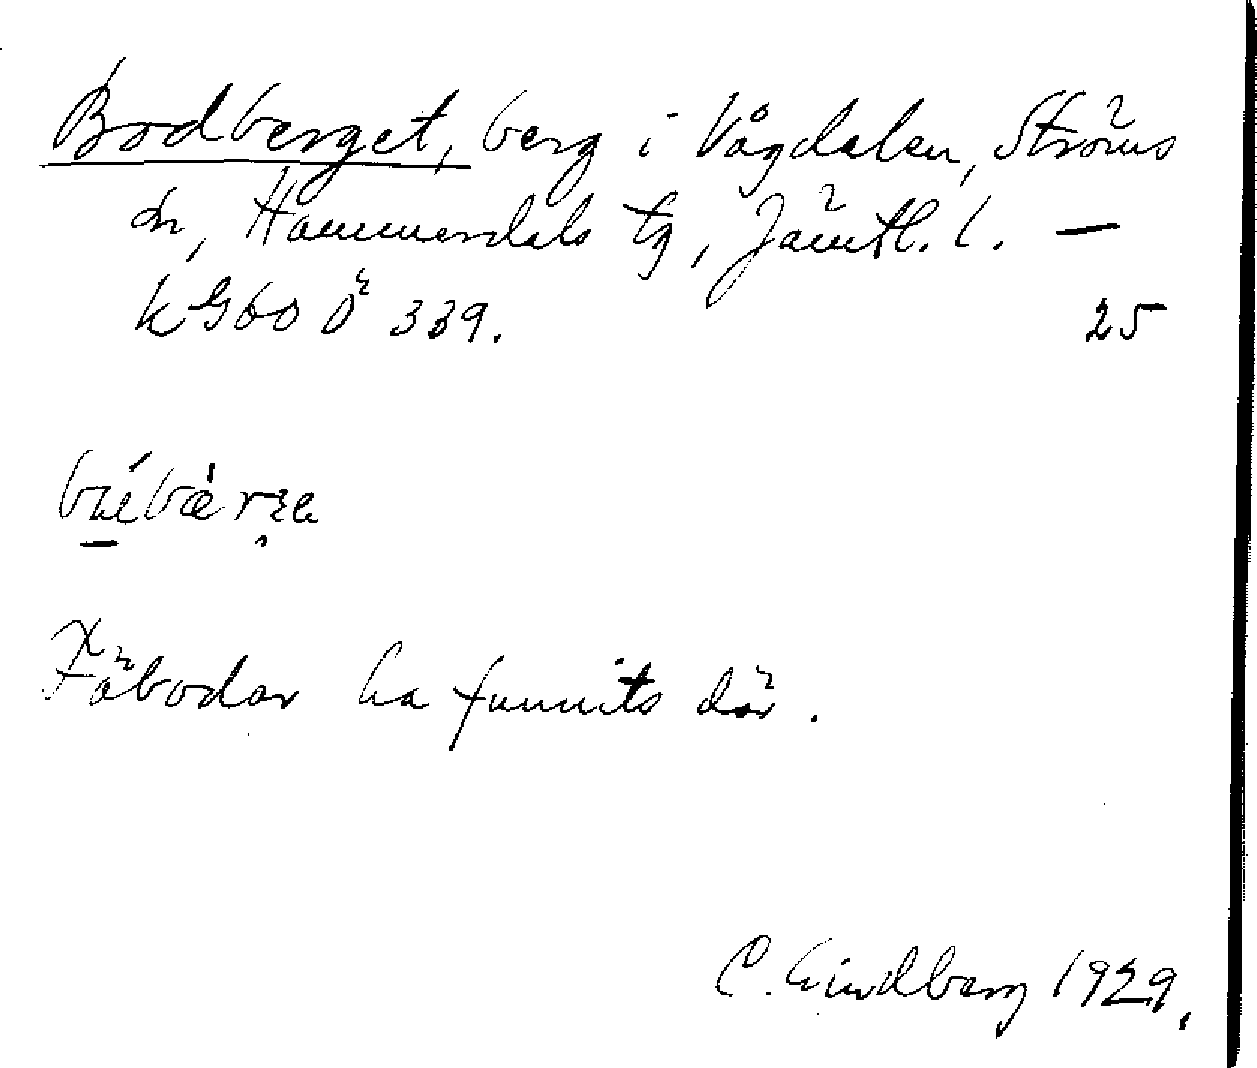 Bodberget, berg i Vågdalen, Ströms
sn, Hammerdals tg, Jämtl. l. —
k G60 Ö 339. 25
Fäbodar ha funnits där.
C. Lindberg 1929.